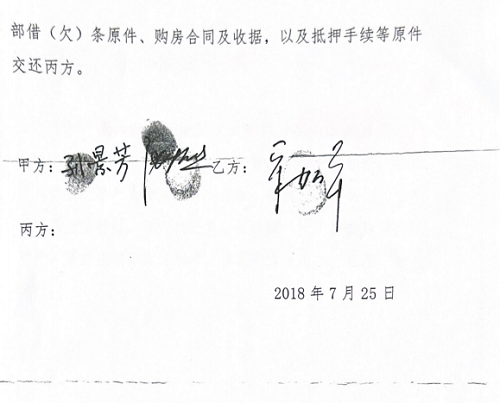 部借（欠）条原件、购房合同及收据，以及抵押手续等原件
交还丙方。
甲方：孙景芳 乙方：
丙方：
2018 年 7 月 25 日